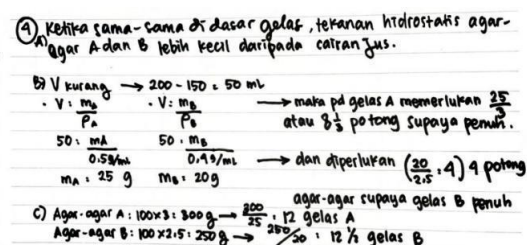 4) A) ketika sama-sama di dasar gelas, tekanan hidrostatis agar-
agar A dan B lebih kecil daripada cairan Jus.
B) V kurang → 200 - 150 = 50 mL
• V = mA/ρA • V = mB/ρB → maka pd gelas A memerlukan 25/3
atau 8 1/3 potong supaya penuh.
50 = mA/0.5 g/mL 50 = mB/0.4 g/mL → dan diperlukan (20/2.5 = 4) 4 potong
mA = 25 g mB = 20 g agar-agar supaya gelas B penuh
C) Agar-agar A : 100x3 = 300 g → 300/25 = 12 gelas A
Agar-agar B : 100x2.5 = 250 g → 250/20 = 12 1/2 gelas B